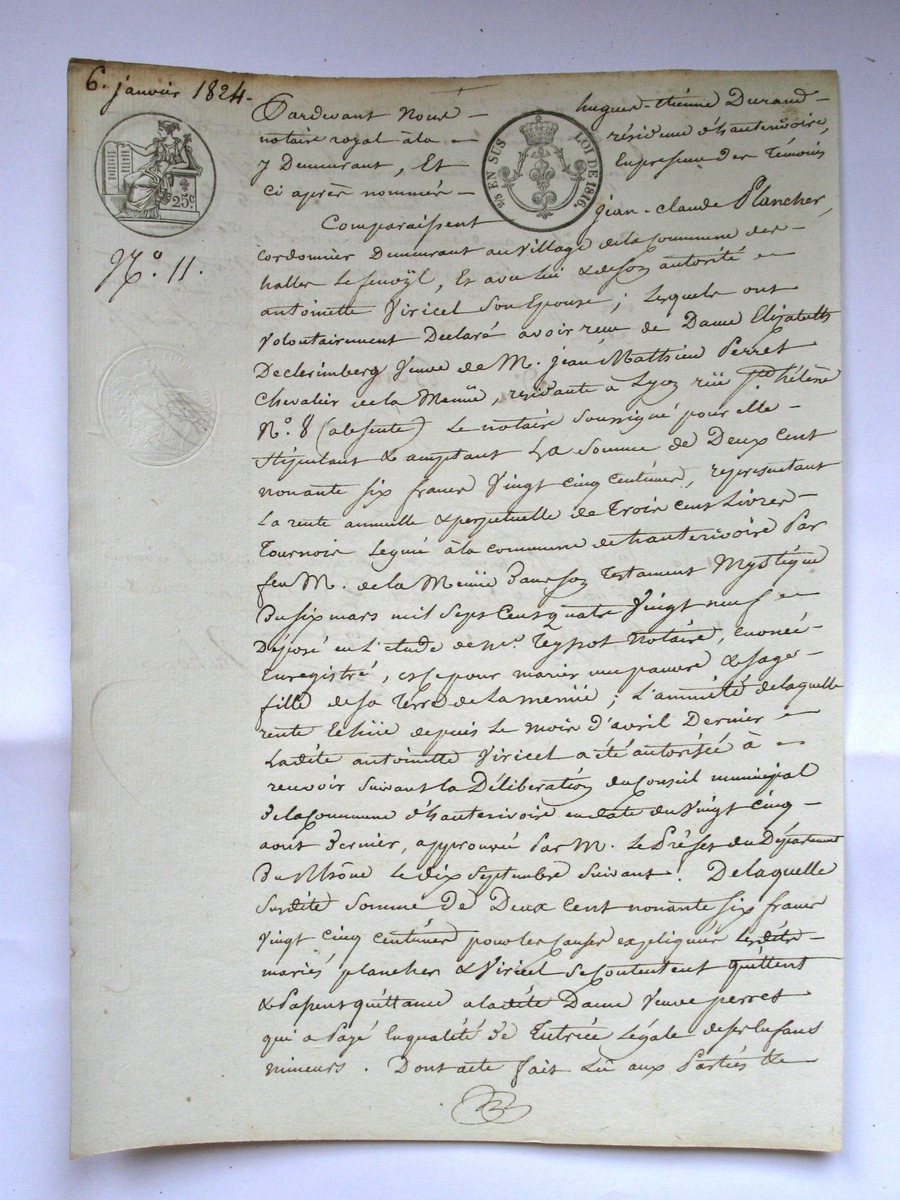 6. janvier 1824.
Pardevant Nous hugues-etiénne Durand
notaire royal à la résidence d'hauterivoire,
y Demeurant, Et En presence des Témoins
Ci après nommés
Comparaissent jean-claude Plancher,
Cordonnier Demeurant au Village de la Commune des
halles Le fenoÿl, Et avec lui & de son autorité
antoinette Viricel Son Epouse ; lesquels ont
Volontairement Declaré avoir reçu de Dame Elizabeth
Declerimberg Veuve de M. jean Mathieu Perret
Chevalier de la Menüe, residante à Lyon rüe Ste hélène
No. 8 (absente) Le notaire Soussigné pour elle
Stipulant & acceptant La Somme de Deux Cent
nonante six francs Vingt Cinq Centimes, représentant
La rente annuelle & perpetuelle de Trois Cens Livres
Tournois Leguée à la commune de hauterivoire Par
feu M. de la Menüe Dans son Testament Mystique
Du six mars mil Sept Cens quatre Vingt neuf
Déposé en L'etude de me. Teyssot Notaire,
Enregistré, et ce pour marier une pauvre & sage
fille de sa Terre de La menüe ; L'annuité de laquelle
rente Echüe depuis Le mois D'avril Dernier
Ladite antoinette Viricel a été autorisée à
recevoir Suivant la Délibération du Conseil municipal
De la Commune d'hauterivoire en date du Vingt Cinq
aout Dernier, approuvée Par M. Le Préfet du Département
Du Rhône Le dix Septembre Suivant. De laquelle
Susdite Somme de Deux Cent nonante six francs
Vingt Cinq Centimes pour les Causes expliquées lesdits
mariés plancher & Viricel Se Contentent quittent
& Passent quittance a ladite Dame Veuve perret
qui a Payé En qualité de Tutrice Légale de ses Enfans
mineurs. Dont acte fait Lû aux Parties &
25 EN SUS LOI DE 1816.
25c
No. 11.